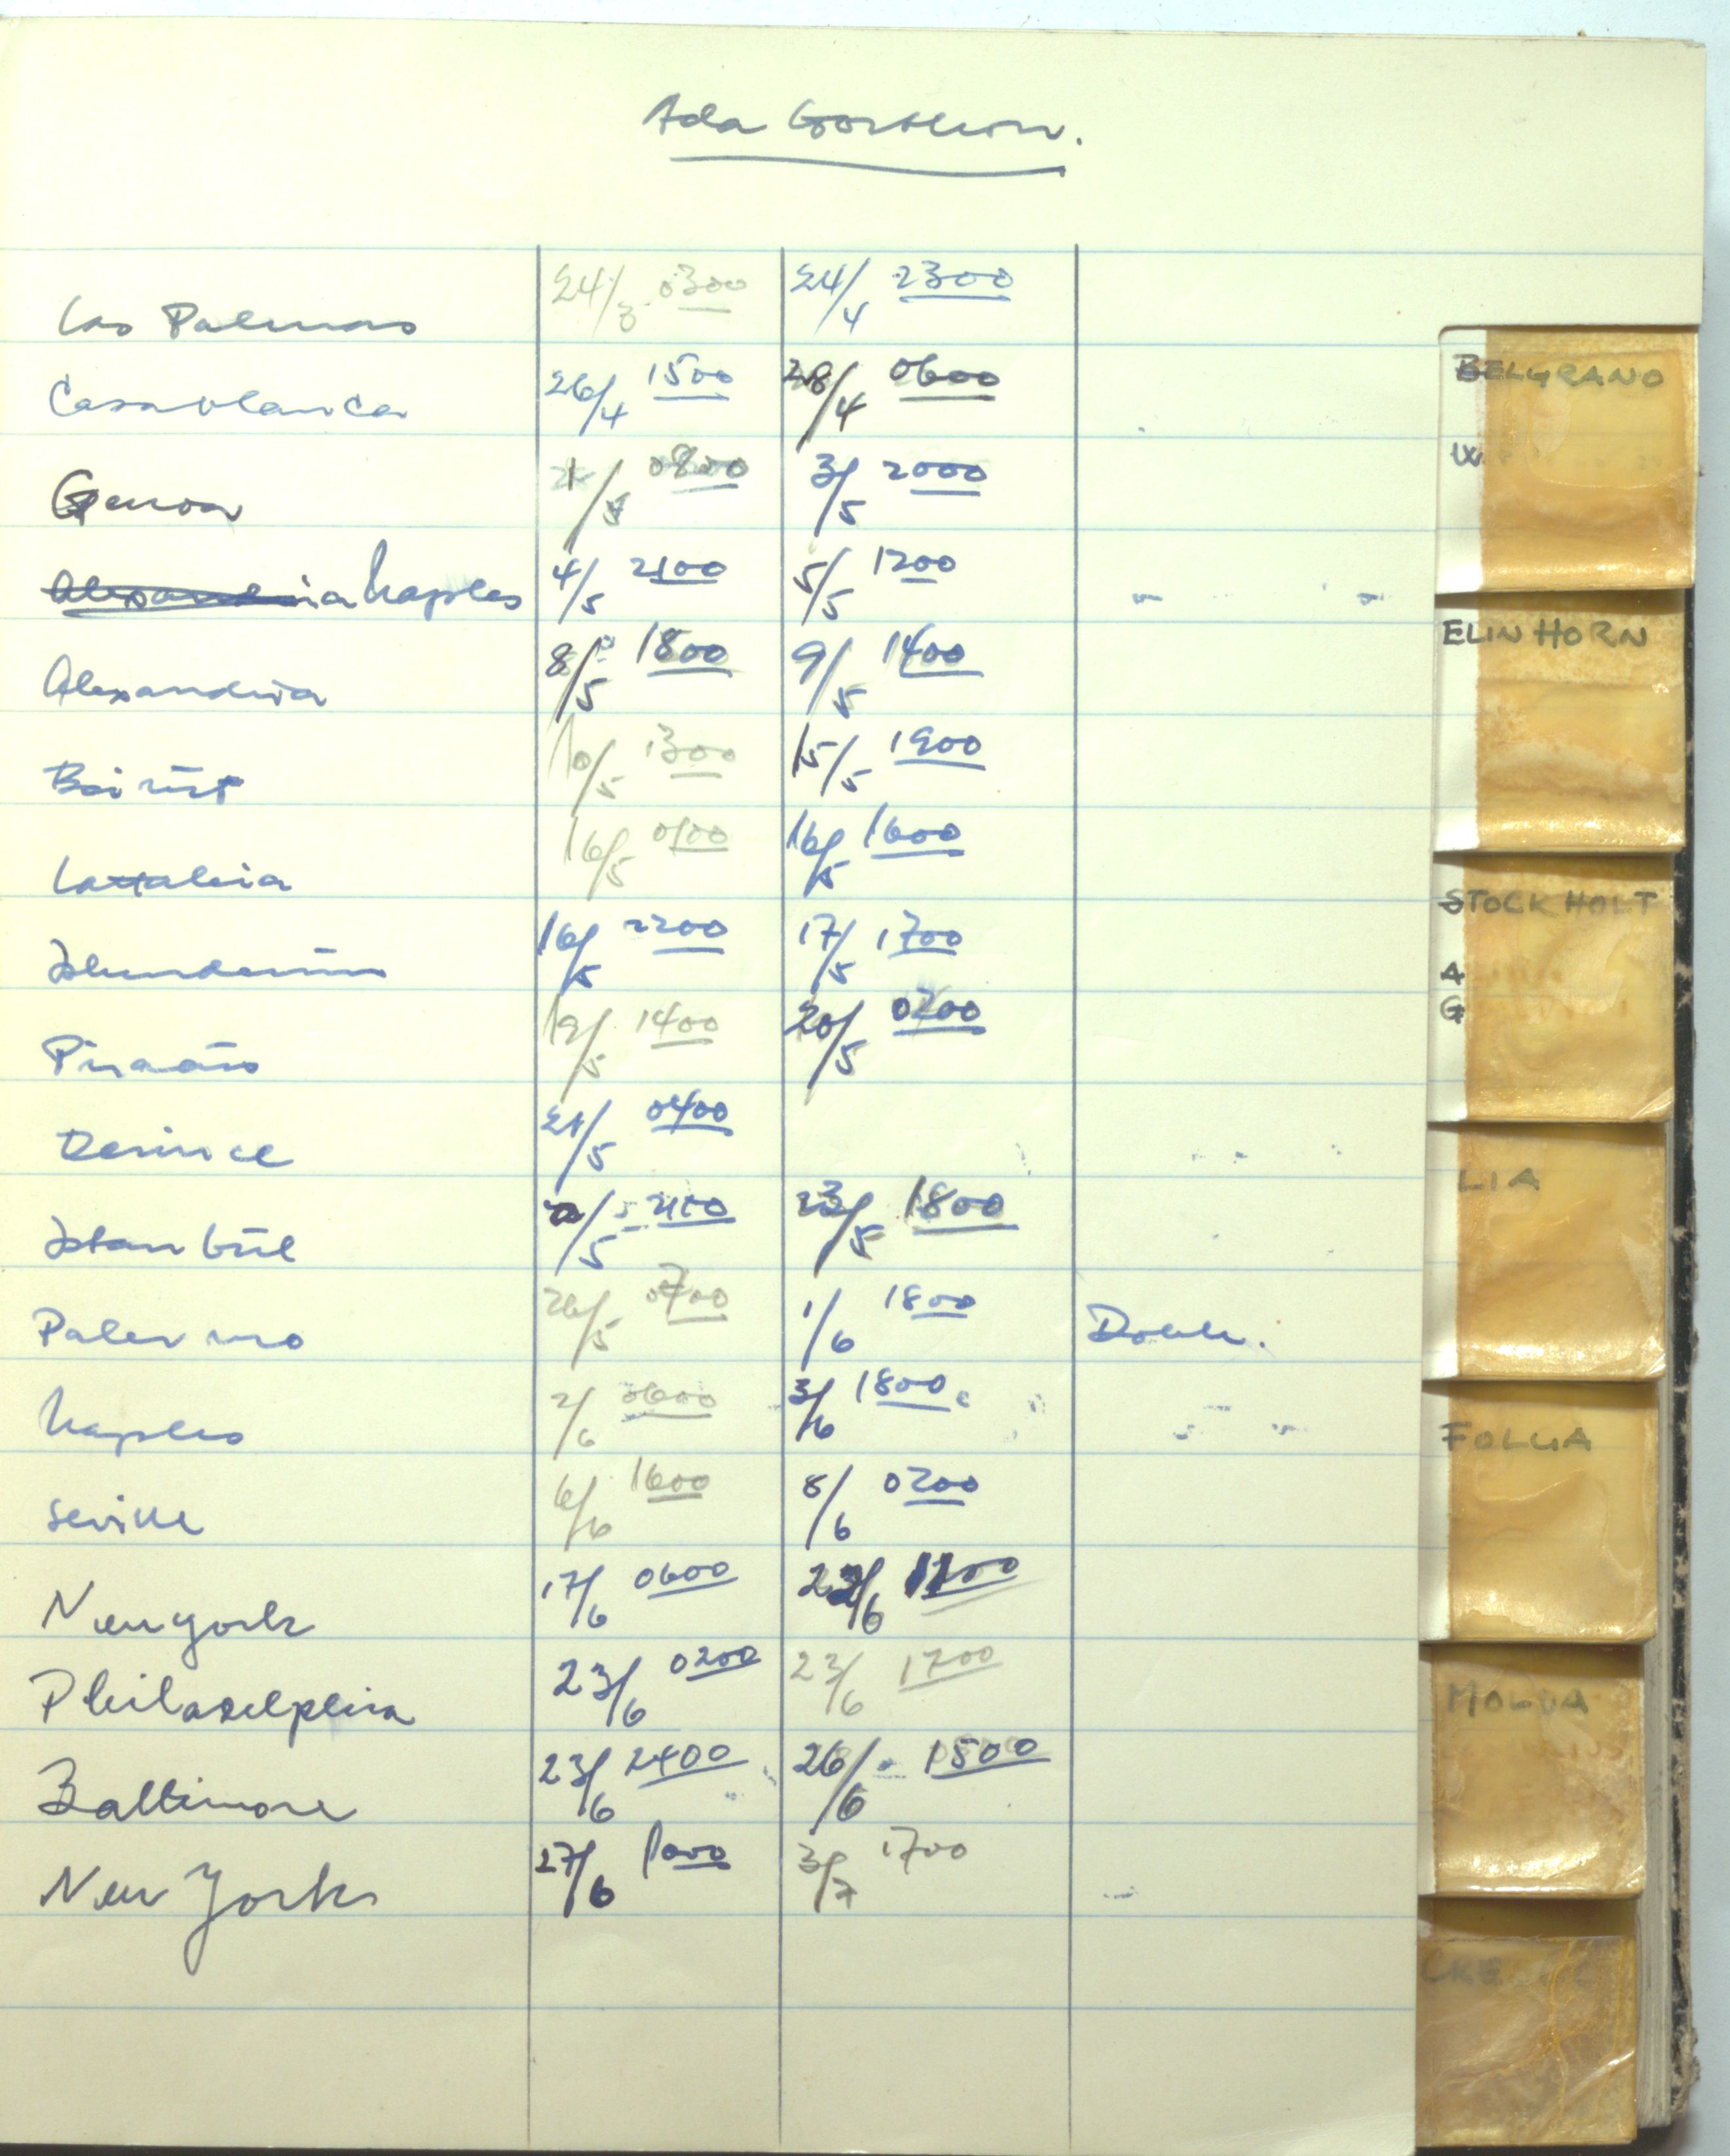 Ada Gorthon.
Las Palmas 24/3 0300 24/4 2300
Casablanca 26/4 1500 28/4 0600
Genoa 1/5 0800 3/5 2000
Alexandria Naples 4/5 2100 5/5 1200
Alexandria 8/5 1800 9/5 1400
Beirüt 10/5 1300 15/5 1900
Lattakia 16/5 0100 16/5 1600
Iskunderün 16/5 2200 17/5 1700
Piraäus 19/5 1400 20/5 0200
Derince 21/5 0400
Istanbül /5 2100 23/5 1800
Palermo 26/5 0700 1/6 1800
Naples 2/6 0600 3/6 1800
Seville 6/6 1600 8/6 0200
New york 17/6 0600 22/6 1200
Philadelphia 23/6 0200 23/6 1700
Baltimore 23/6 2400 26/6 1500
New York 27/6 1000 3/7 1700
BELGRANO
W
ELIN HORN
STOCKHOLT
A
G
LIA
FOLLIA